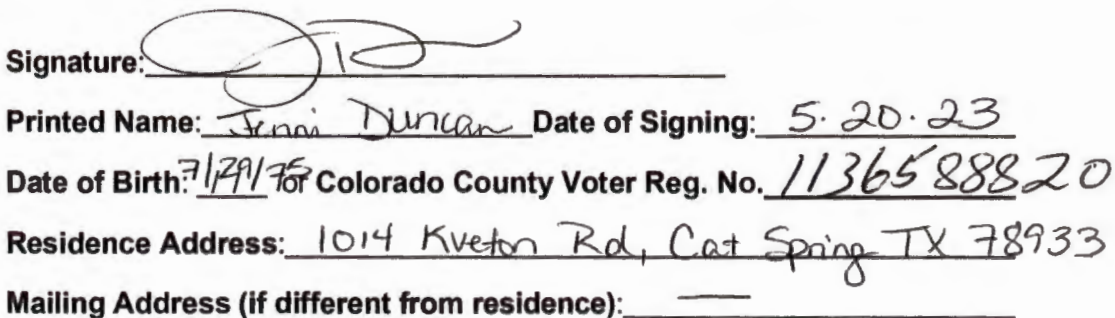 Signature:
Printed Name: Jenni Duncan Date of Signing: 5.20.23
Date of Birth: 7/29/75 or Colorado County Voter Reg. No. 1136588820
Residence Address: 1014 Kveton Rd, Cat Spring TX 78933
Mailing Address (if different from residence): —